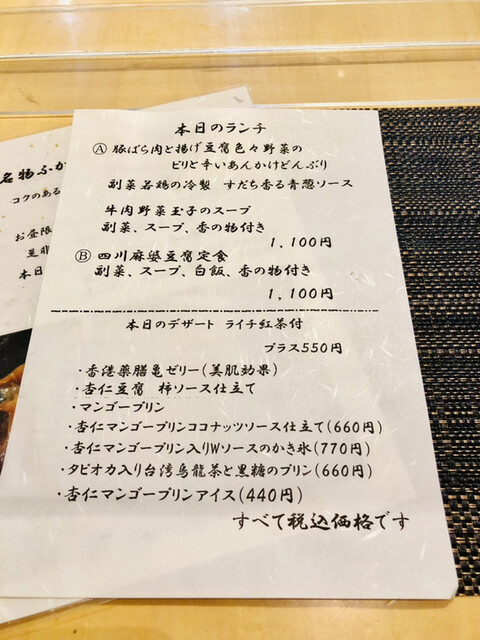 本日のランチ
Ⓐ 豚ばら肉と揚げ豆腐色々野菜の
ピリと辛いあんかけどんぶり
副菜若鶏の冷製 すだち香る青葱ソース
牛肉野菜玉子のスープ
副菜、スープ、香の物付き
1,100円
Ⓑ 四川麻婆豆腐定食
副菜、スープ、白飯、香の物付き
1,100円
本日のデザート ライチ紅茶付
プラス550円
・香港薬膳亀ゼリー(美肌効果)
・杏仁豆腐 柿ソース仕立て
・マンゴープリン
・杏仁マンゴープリンココナッツソース仕立て(660円)
・杏仁マンゴープリン入りWソースのかき氷(770円)
・タピオカ入り台湾烏龍茶と黒糖のプリン(660円)
・杏仁マンゴープリンアイス(440円)
すべて税込価格です
名物ふか
コクのある
お昼限
本日